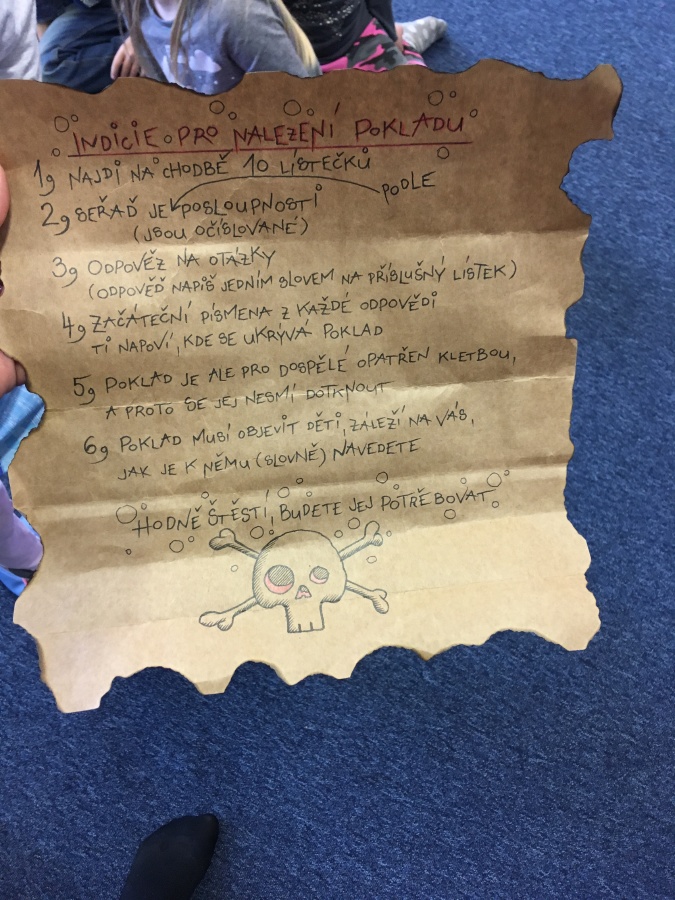 INDICIE PRO NALEZENÍ POKLADU
1, NAJDI NA CHODBĚ 10 LÍSTEČKŮ
2, SEŘAĎ JE PODLE POSLOUPNOSTI
(JSOU OČÍSLOVANÉ)
3, ODPOVĚZ NA OTÁZKY
(ODPOVĚĎ NAPIŠ JEDNÍM SLOVEM NA PŘÍSLUŠNÝ LÍSTEK)
4, ZAČÁTEČNÍ PÍSMENA Z KAŽDÉ ODPOVĚDI
TI NAPOVÍ, KDE SE UKRÝVÁ POKLAD
5, POKLAD JE ALE PRO DOSPĚLÉ OPATŘEN KLETBOU,
A PROTO SE JEJ NESMÍ DOTKNOUT
6, POKLAD MUSÍ OBJEVIT DĚTI, ZÁLEŽÍ NA VÁS,
JAK JE K NĚMU (SLOVNĚ) NAVEDETE
HODNĚ ŠTĚSTÍ, BUDETE JEJ POTŘEBOVAT